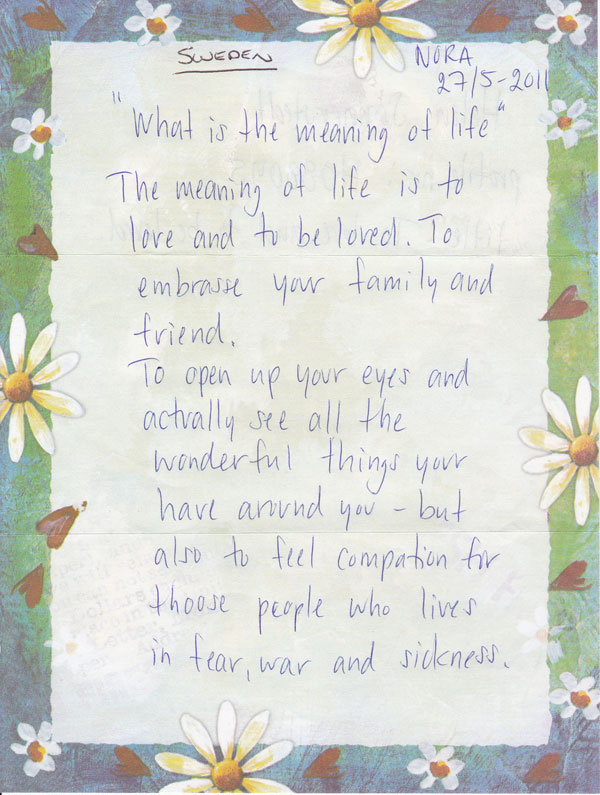 SWEDEN
NORA
27/5-2011
"What is the meaning of life"
The meaning of life is to
love and to be loved. To
embrasse your family and
friend.
To open up your eyes and
actually see all the
wonderful things your
have around you - but
also to feel compation for
thoose people who lives
in fear, war and sickness.